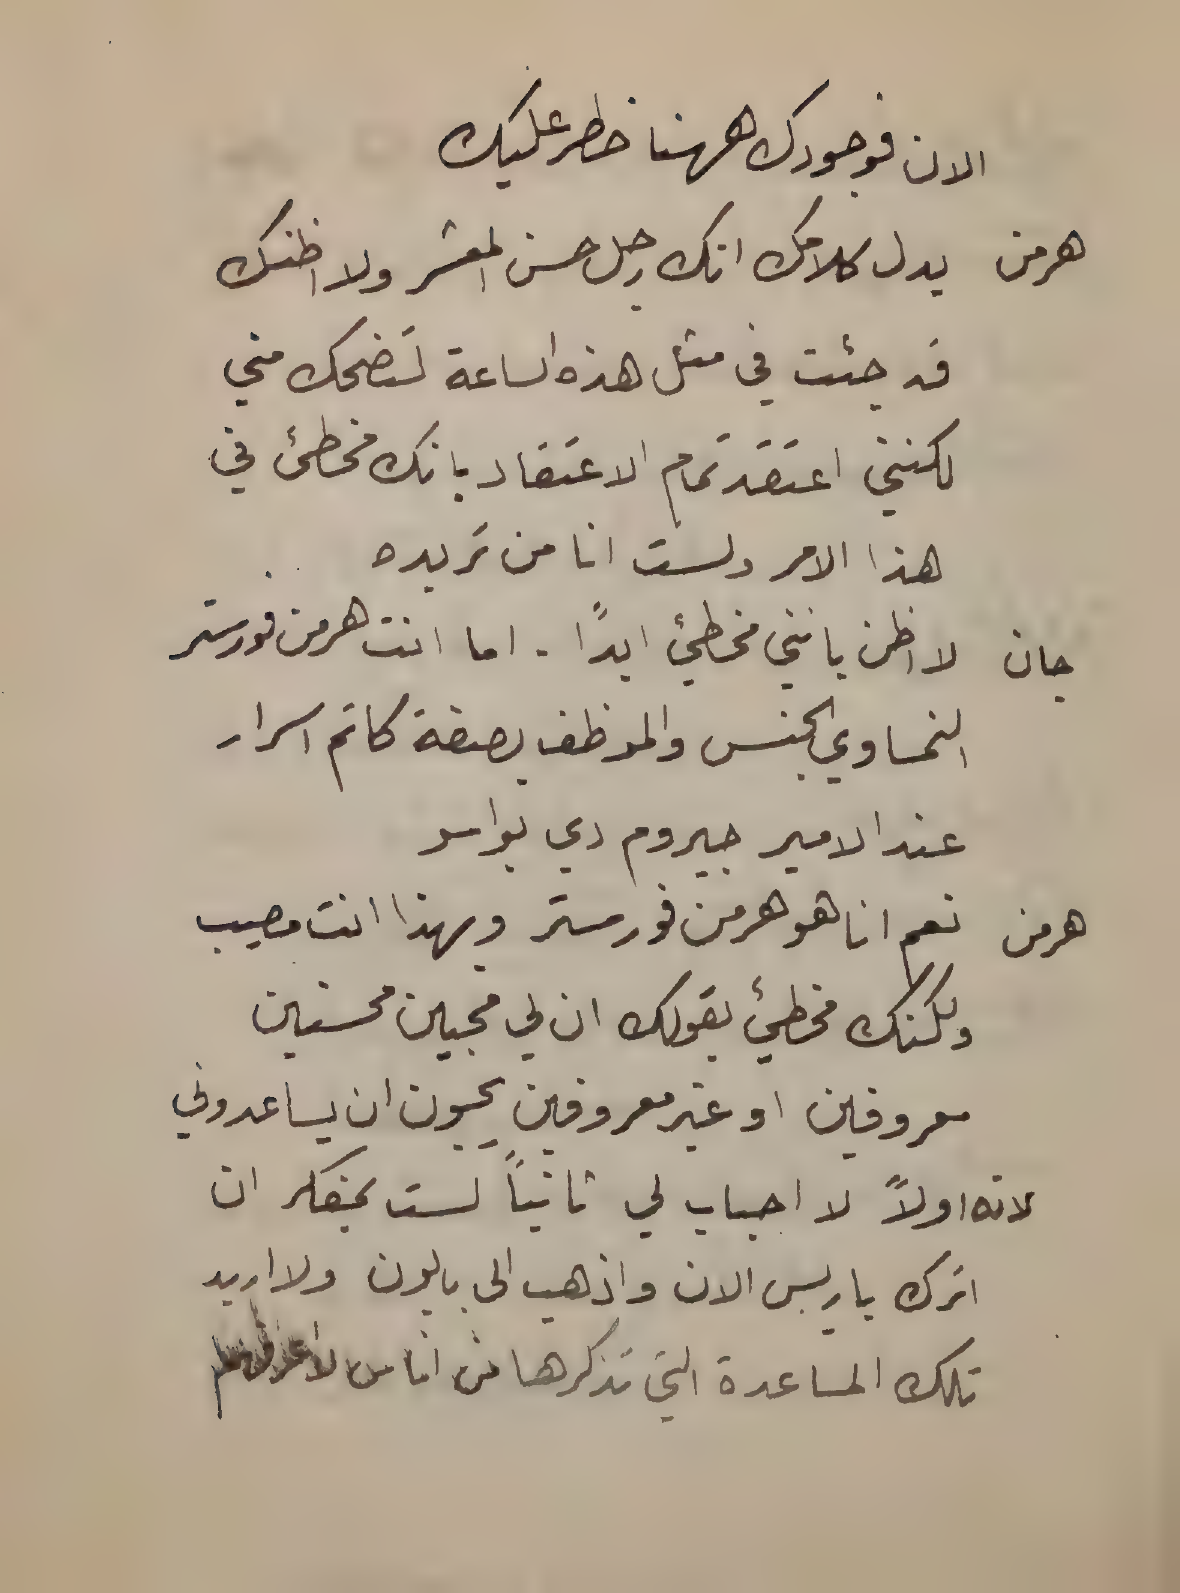 الان فوجودك ههنا خطر عليك
هرمن يدل كلامك انك رجل حسن المعشر ولا اظنك
قد جئت في مثل هذه الساعة لتضحك مني
لكنني اعتقد تمام الاعتقاد بانك مخطئ في
هذا الامر ولست انا من تريده
جان لا اظن بانني مخطئ ابدًا . اما انت هرمن فورستر
النمساوي الجنس والموظف بصفة كاتم اسرار
عند الامير جيروم دي بواسو
هرمن نعم انا هو هرمن فورستر وبهذا انت مصيب
ولكنك مخطئ بقولك ان لي محبين محسنين
معروفين او غير معروفين يحبون ان يساعدوني
لانه اولاً لا احباب لي ثانياً لست بمفكر ان
اترك باريس الان واذهب الى بالون ولا اريد
تلك المساعدة التي تذكرها من اناس لا اعرفهم